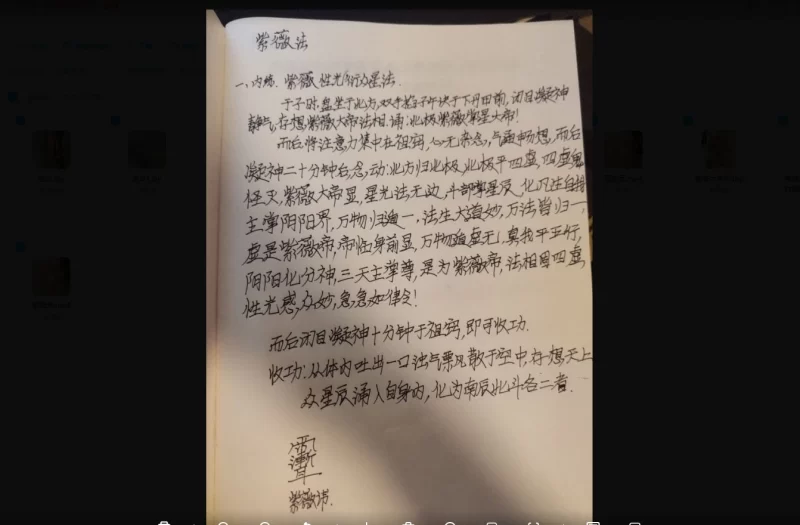 紫薇法
一、内练. 紫薇性光(衍)星法.
于子时,盘坐于北方,双手抱子午诀于下丹田前,闭目凝神
静气,存想紫薇大帝法相,诵:北极紫薇紫星大帝!
而后将注意力集中在祖窍,心无杂念,气通畅想,而后
凝神二十分钟后,念动:北方归北极,北极平四虚,四虚鬼
怪灭,紫薇大帝显,星光法无边,斗部掌星辰,化凡在自操
主掌阴阳界,万物归一,法生大道妙,万法皆归一,
虚是紫薇帝,帝临身前显,万物虚无,真我平五行,
阴阳化分神,三天主掌尊,是为紫薇帝,法相周四虚,
性光感,众妙,急急如律令!
而后闭目凝神十分钟于祖窍,即可收功.
收功:从体内吐出一口浊气飘散于空中,存想天上
众星辰涌入自身内,化为南辰北斗合二者.
紫薇讳.